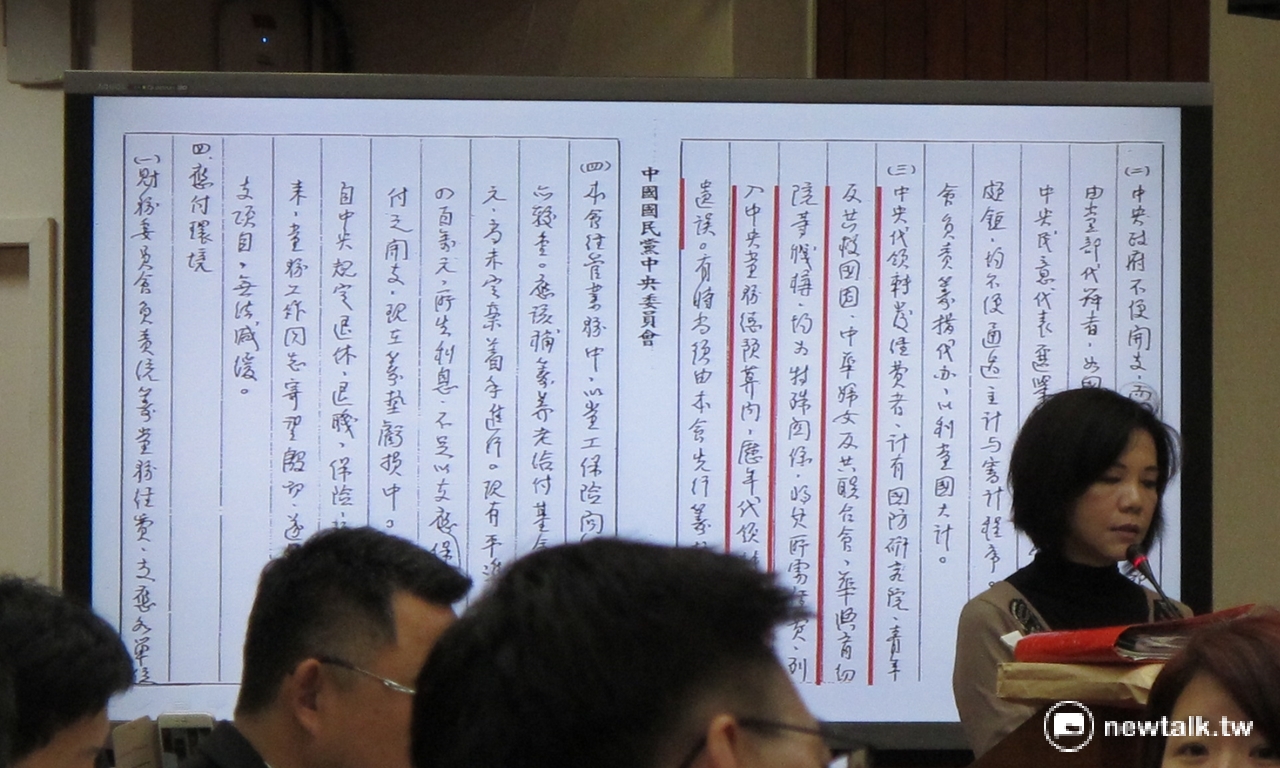 (二)中央政府不便開支,而
由黨部代辦者,如國
中央民意代表選舉
頗鉅,均不便通過主計与審計程序。
會負責籌措代办,以利黨國大計。
(三)中央代領轉發經費者,計有國防研究院、青年
反共救國團、中華婦女反共联合會、華興育幼
院等機構,均为特殊関係,將其所需經費,列
入中央黨務總預算內,歷年代領
遺誤。有時尚須由本會先行籌
中國國民黨中央委員會
(四)本會經管業務中,以黨工保險
亦艱重。應該補籌養老給付基金
元,尚未定案着手進行。現有平
四百萬元,所生利息,不足以支應保
付之開支,現在籌墊虧損中。
自中央規定退休、退職、保險
來,黨務工作同志寄望殷切,遂
支項目,無法減緩。
四、應付環境
(一)財務委員會負責統籌黨務經費,支應各單位
newtalk.tw